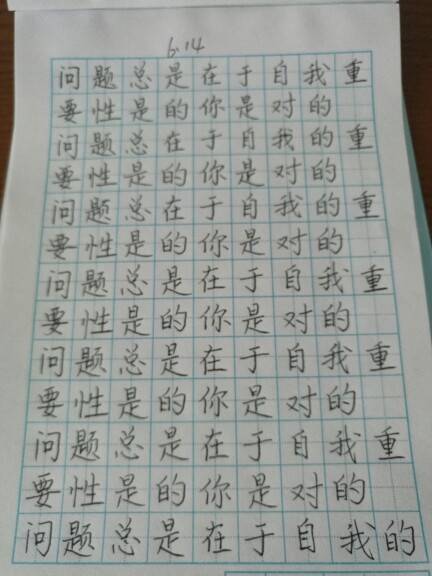 6.14
问题总是在于自我重
要性是的你是对的
问题总在于自我的重
要性是的你是对的
问题总在于自我的重
要性是的你是对的
问题总是在于自我重
要性是的你是对的
问题总是在于自我重
要性是的你是对的
问题总是在于自我重
要性是的你是对的
问题总是在于自我的